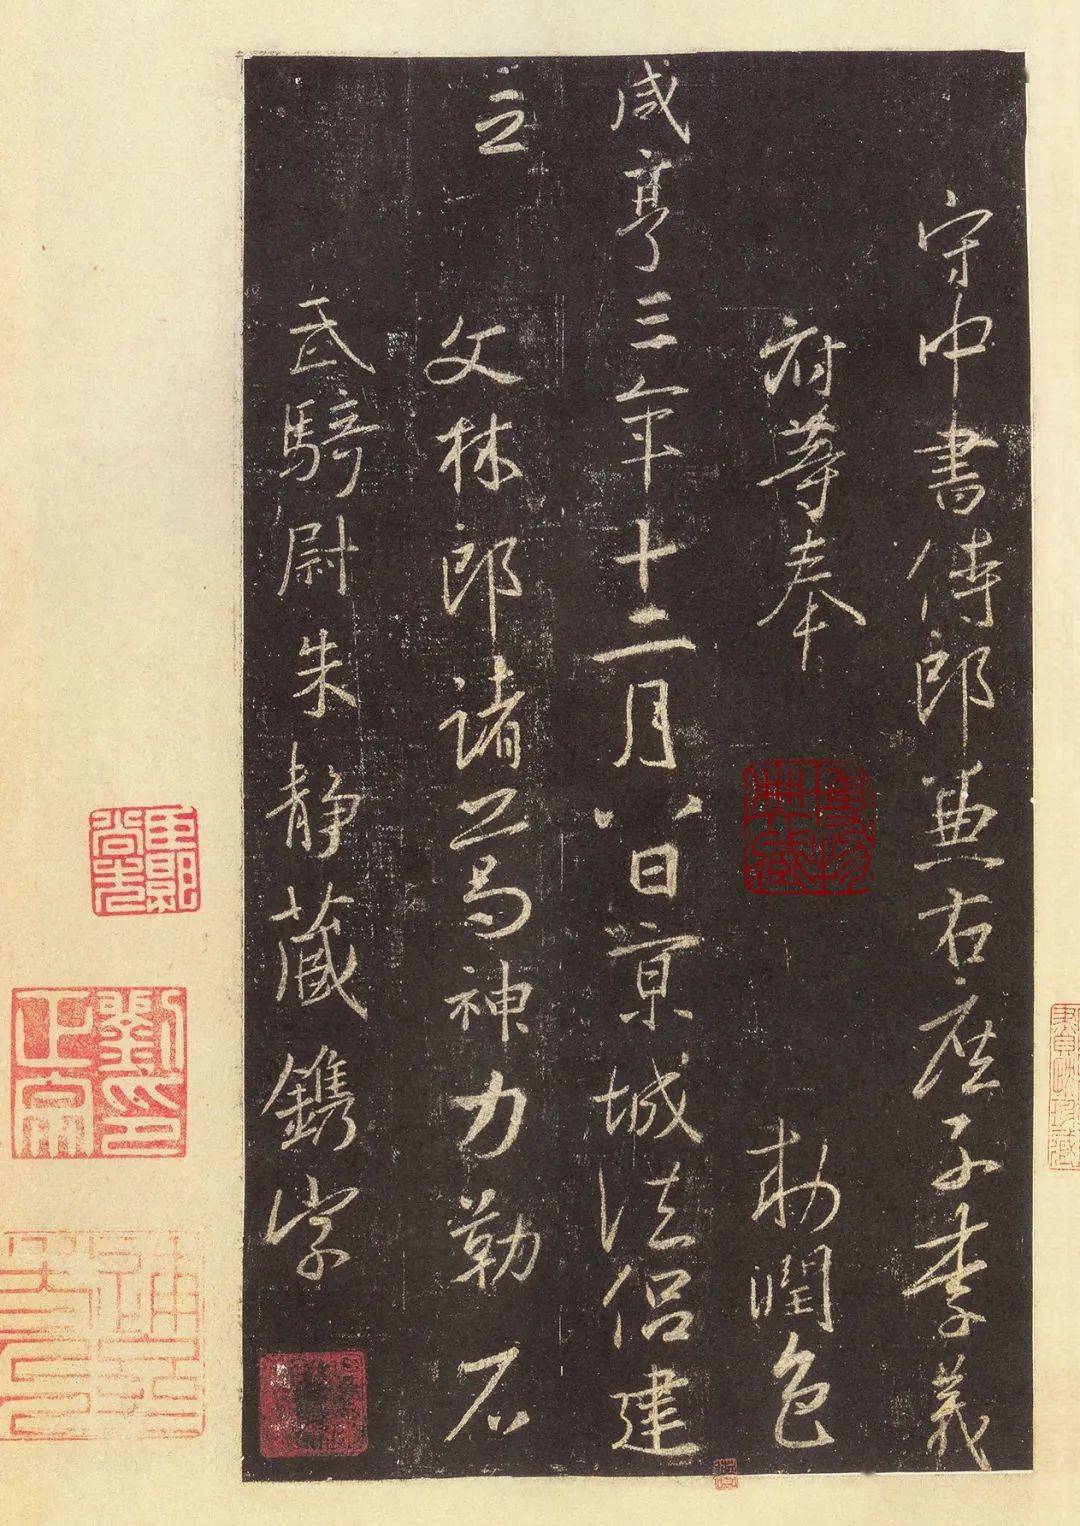 守中書侍郎兼右庶子李義
府等奉 勅潤色
咸亨三年十二月八日京城法侶建
立
文林郎諸葛神力勒石
武騎尉朱静藏鐫字